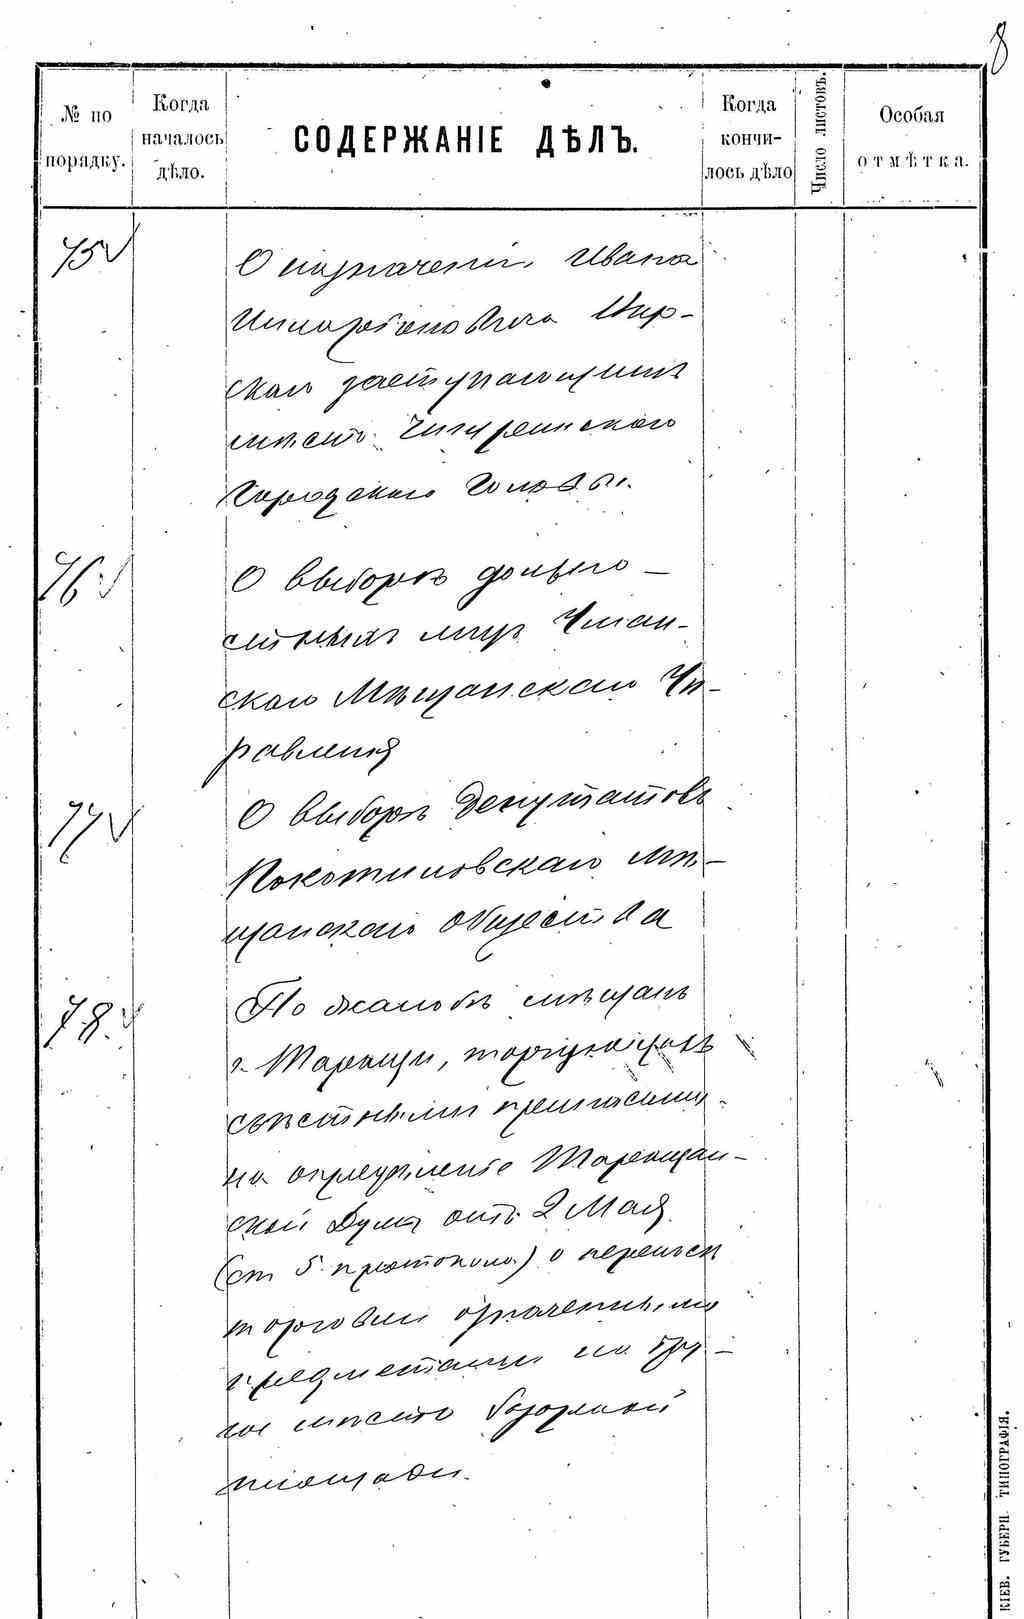 8
№ по порядку.
Когда началось дѣло.
СОДЕРЖАНІЕ ДѢЛЪ.
Когда кончилось дѣло
Число листовъ.
Особая отмѣтка.
75 О назначеніи Ивана
скаго заступающимъ
мѣсто Чигиринскаго
Городскаго Головы.
76 О выборѣ должно-
стныхъ лицъ Уман-
скаго Мѣщанскаго Уп-
равленія
77 О выборѣ Депутатовъ
Покотиловскаго мѣ-
щанскаго общества
78. По жалобѣ мѣщанъ
г. Таращи, торгующихъ
съѣстными припасами
на опредѣленіе Таращан-
ской Думы отъ 2 Мая
(ст 5 протокола) о переносѣ
торговли означенными
предметами на дру-
гое мѣсто базарной
площади.
КІЕВ. ГУБЕРН. ТИПОГРАФІЯ.